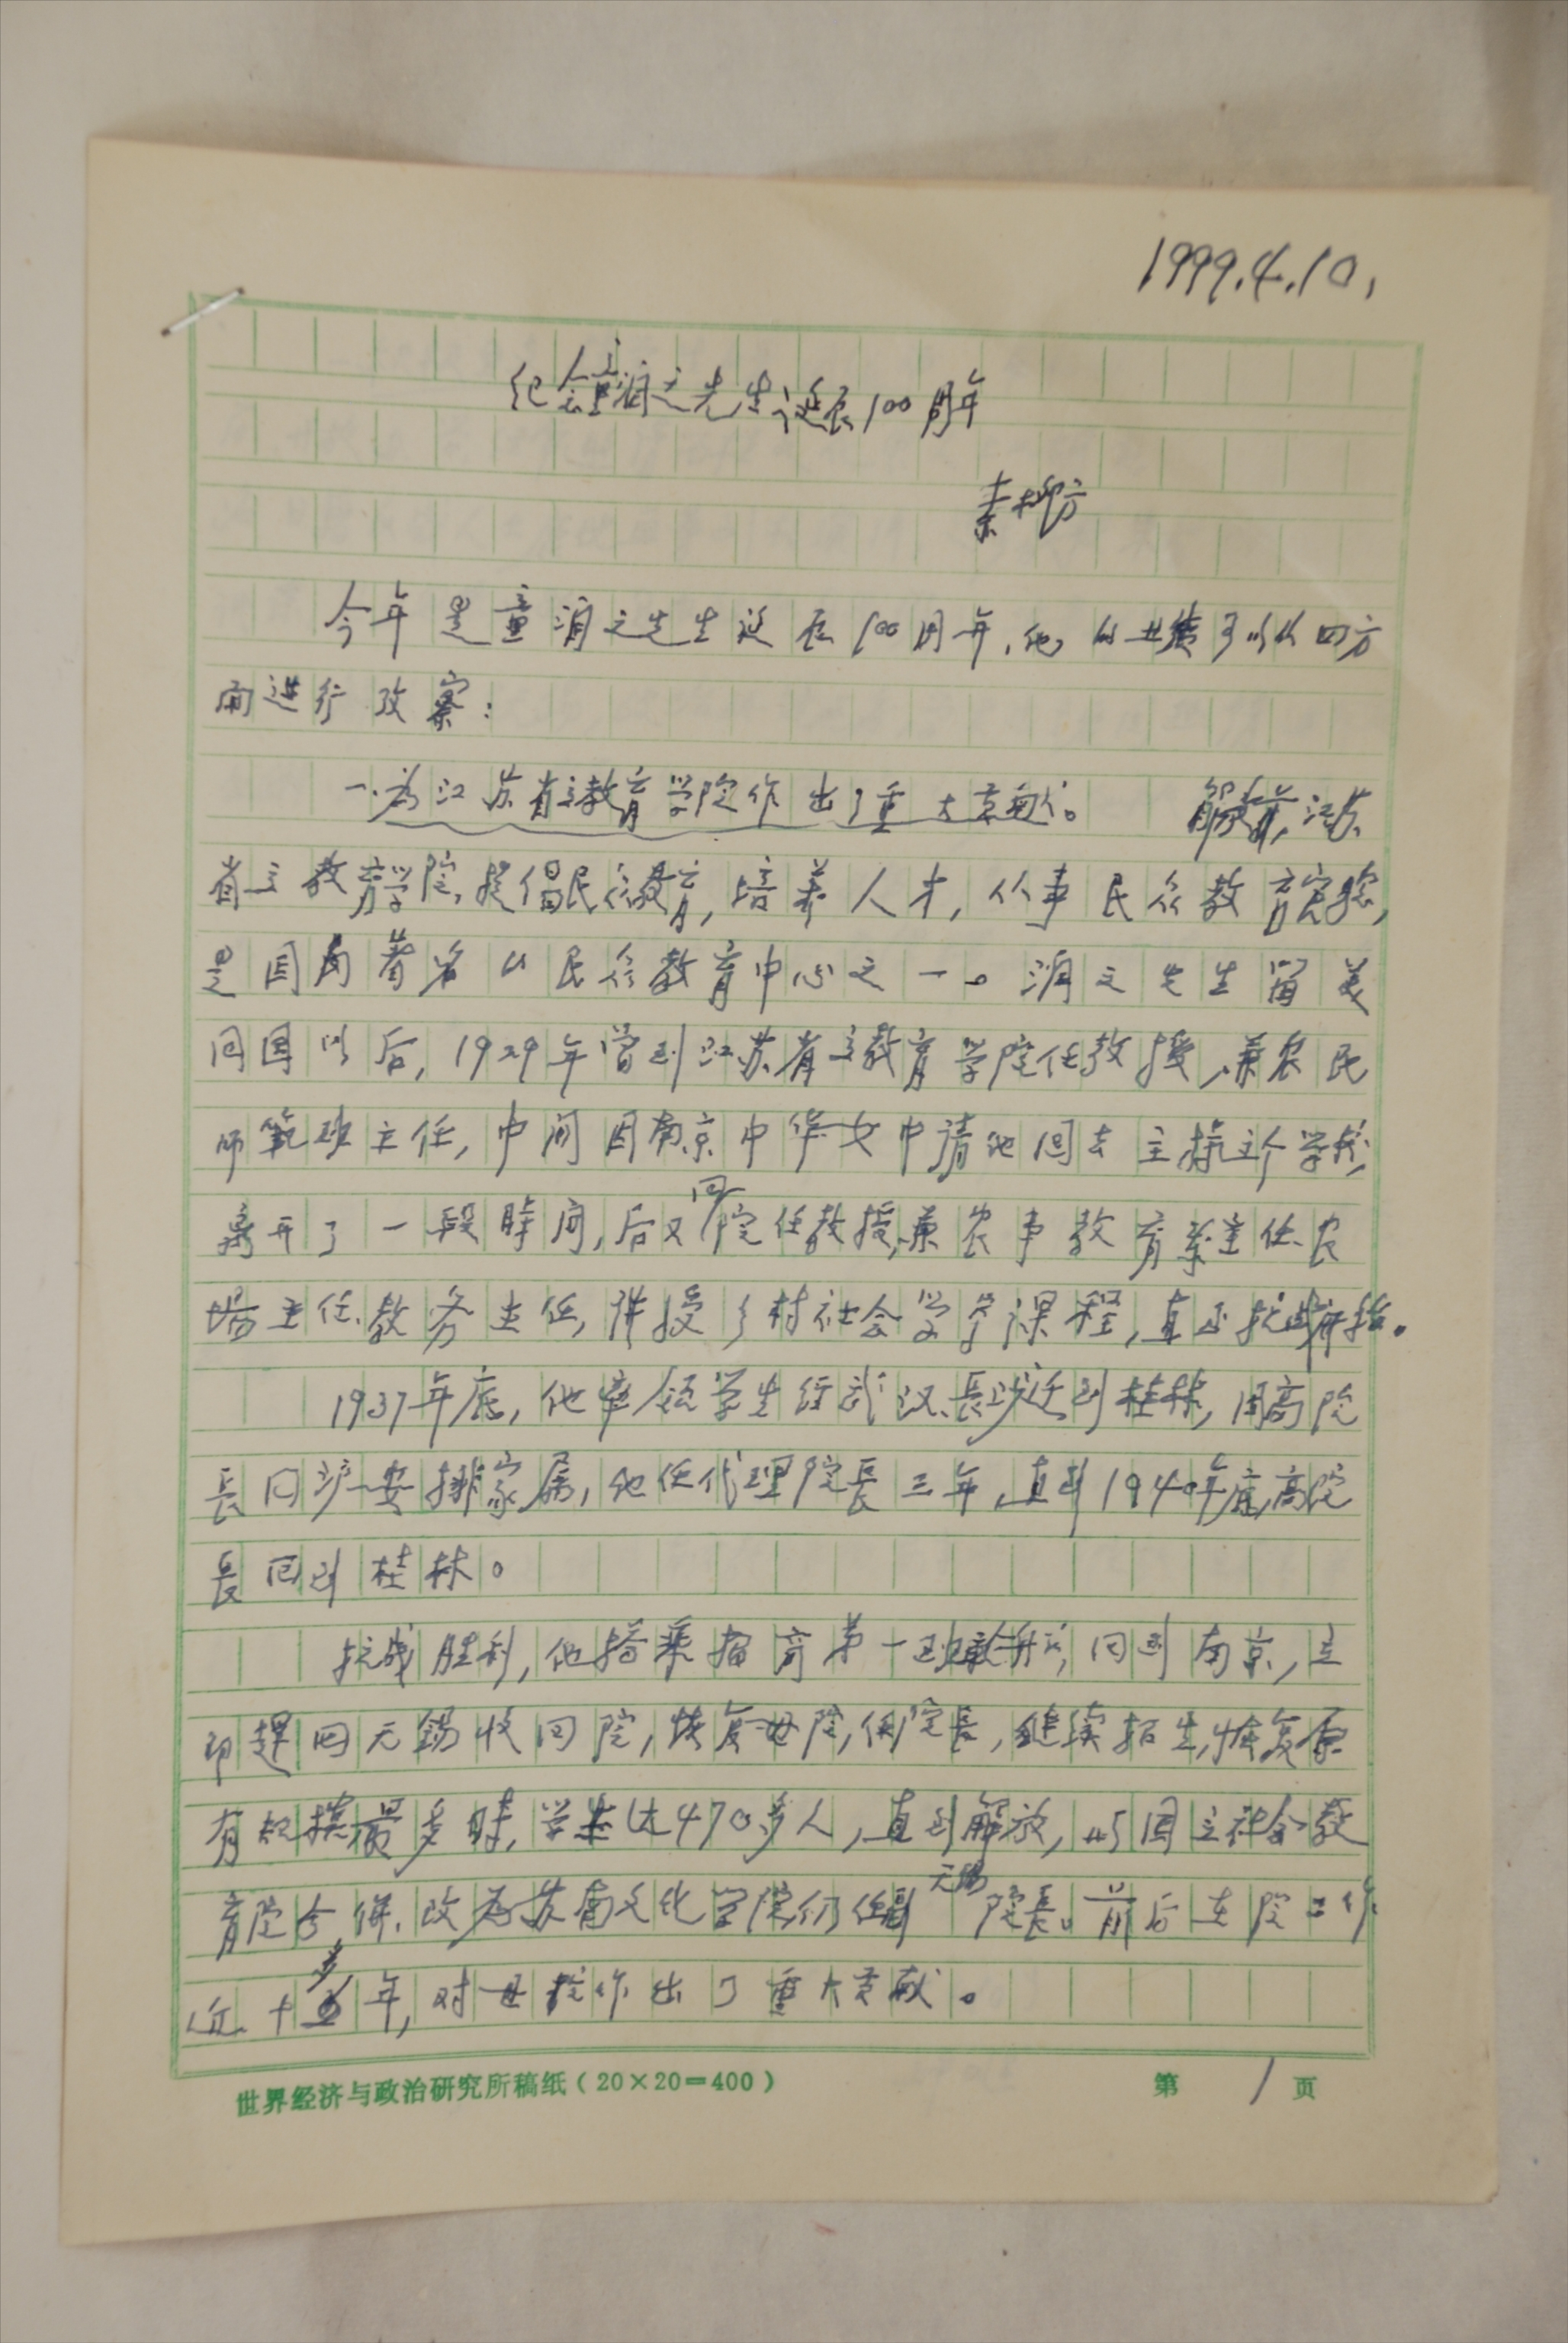 1999.4.10.
纪念童润之先生诞辰100周年
秦柳方
今年是童润之先生诞辰100周年,他的业绩可以从四方
面进行考察:
一、为江苏省立教育学院作出了重大贡献。 解放前,江苏
省立教育学院,提倡民众教育,培养人才,从事民众教育实验,
是国内著名的民众教育中心之一。润之先生留美
回国以后,1929年曾到江苏省立教育学院任教授、兼农民
师范班主任,中间因南京中华女中请他回去主持这个学校,
离开了一段时间,后又回院任教授,兼农事教育系主任、农
场主任、教务主任,讲授乡村社会学等课程,直到抗战开始。
1937年底,他率领学生经武汉、长沙迁到桂林,因高院
长回沪安排家属,他任代理院长三年,直到1940年底,高院
长回到桂林。
抗战胜利,他搭乘 第一班 回到南京,立
即赶回无锡收回院,恢复母院,任院长,继续招生,恢复原
有规模最多时,学生达470多人,直到解放,与国立社会教
育院合併、改为苏南文化学院,仍任副无锡院长。前后在院工作
近十多年,对母校作出了重大贡献。
世界经济与政治研究所稿纸(20×20=400)
第 1 页